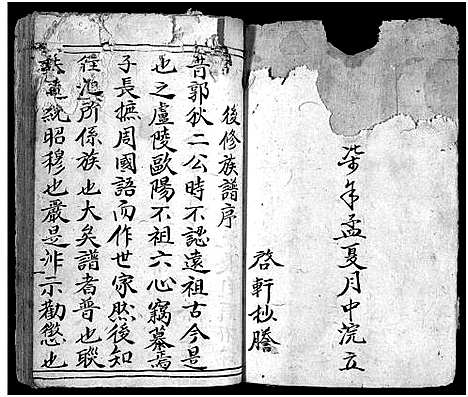 柒年孟夏月中浣立
啓軒抄謄
後修族譜序
昔郭狄二公時不認遠祖古今是
也之廬陵歐陽不祖六心竊慕焉
子長摭周國語而作世家然後知
所係族也大矣譜者普也聯
統昭穆也嚴是非示勸懲也